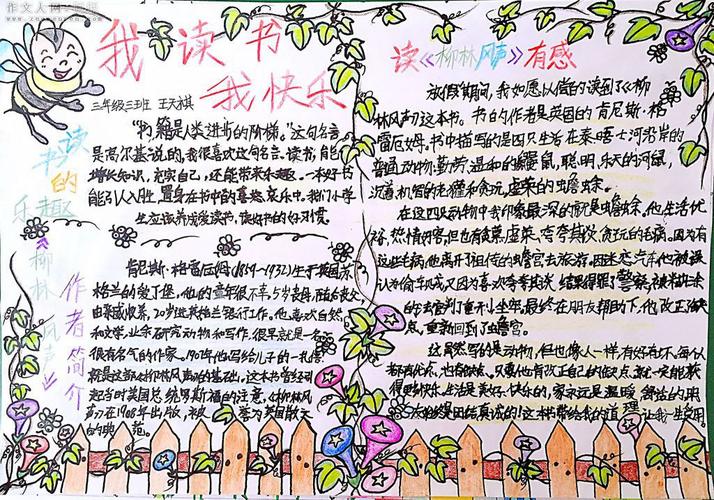 作文人网
我读书
我快乐
三年级三班 王天祺
读书的
乐趣
"书籍是人类进步的阶梯。"这句名言
是高尔基说的,我很喜欢这句名言。读书,能
增长知识,充实自己,还能带来乐趣。一本好书
能引人入胜,置身在书中的喜怒哀乐中。我们小学
生应该养成爱读书,读好书的好习惯。
《柳林风声》
作者简介
肯尼斯·格雷厄姆(1859-1932)生于英国苏
格兰的爱丁堡,他的童年很不幸,5岁丧母,随后丧父,
由亲戚收养,20岁进英格兰银行工作。他喜欢自然
和文学,业余研究动物和写作,很早就是一名
很有名气的作家。1907年他写给儿子的一扎信
就是这部《柳林风声》的基础,这本书曾经引
起当时美国总统罗斯福的注意。《柳林风
声》在1908年出版,被誉为英国散文
的典范。
读《柳林风声》有感
放假期间,我如愿以偿的读到了《柳
林风声》这本书。书的作者是英国的肯尼斯·格
雷厄姆。书中描写的是四只生活在泰晤士河沿岸的
普通动物:勤劳、温和的鼹鼠,聪明、乐天的河鼠,
沉着、机智的老獾和贪玩、虚荣的蟾蜍。
在这四只动物中我印象最深的就是蟾蜍。他生活优
裕,热情好客,但也有爱慕虚荣、夸夸其谈、贪玩的毛病。因为有
这些毛病,他离开祖传的蟾宫去旅游,因迷恋汽车,他被误
认为偷车贼,又因为喜欢夸夸其谈,结果得罪了警察,被
法官判了重刑坐牢。最终在朋友帮助下,他改正缺
点,重新回到了蟾宫。
这虽然写的是动物,但也像人一样,有好有坏。每个人
都有优点,也有缺点,只要他肯改正自己的缺点,就一定能获
得更多快乐。生活是美好、快乐的,家永远是温暖、舒适的,朋
友始终是团结真诚的!这本书带给我的道理让我一生受用。